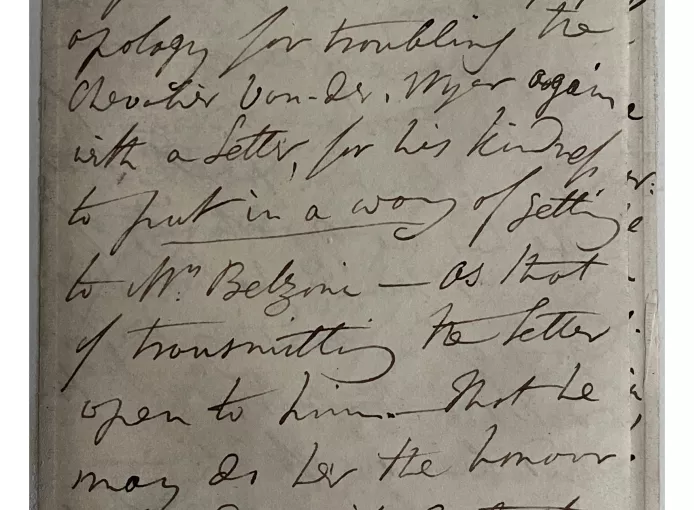 apology for troubling the
Chevalier Van-der. Wyer again
with a Letter, for his kindness
to put in a way of getting
to Mrs. Belzoni — as that
of transmitting the Letter
open to him. — that he
may do her the honour